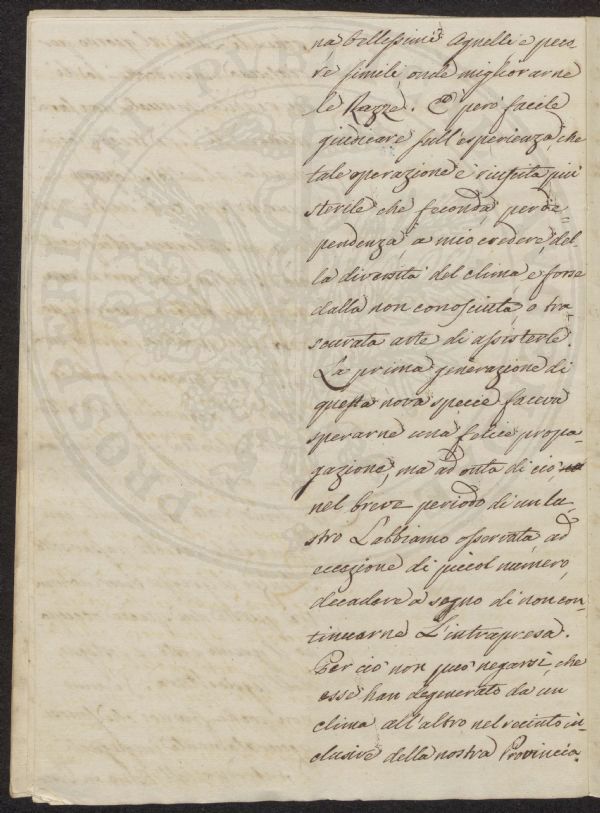 na bellessimi Agnelli e peco
re simili, onde migliorarne
le Razze. È però facile
giudicare sull'esperienza che
tale operazione è riuscita più
sterile che feconda, per di-
pendenza, a mio credere, del-
la diversità del clima, e forse
dalla non conosciuta, o tra-
scurata arte di assisterle.
La prima generazione di
questa nova specie faceva
sperarne una felice propa
gazione, ma ad onta di ciò
nel breve periodo di un lu-
stro L'abbiamo osservata, ad
eccezione di piccol numero,
decadere a segno di non con-
tinuarne L'intrapresa.
Per ciò non può negarsi, che
esse han degenerato da un
clima all'altro nel recinto in-
clusive della nostra Provincia.
PROSPERITA PVBLI